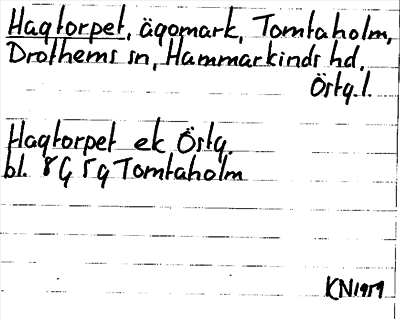 Hagtorpet, ägomark, Tomtaholm,
Drothems sn, Hammarkinds hd,
Östg.l.
Hagtorpet ek Östg.
bl. 8G 5g Tomtaholm